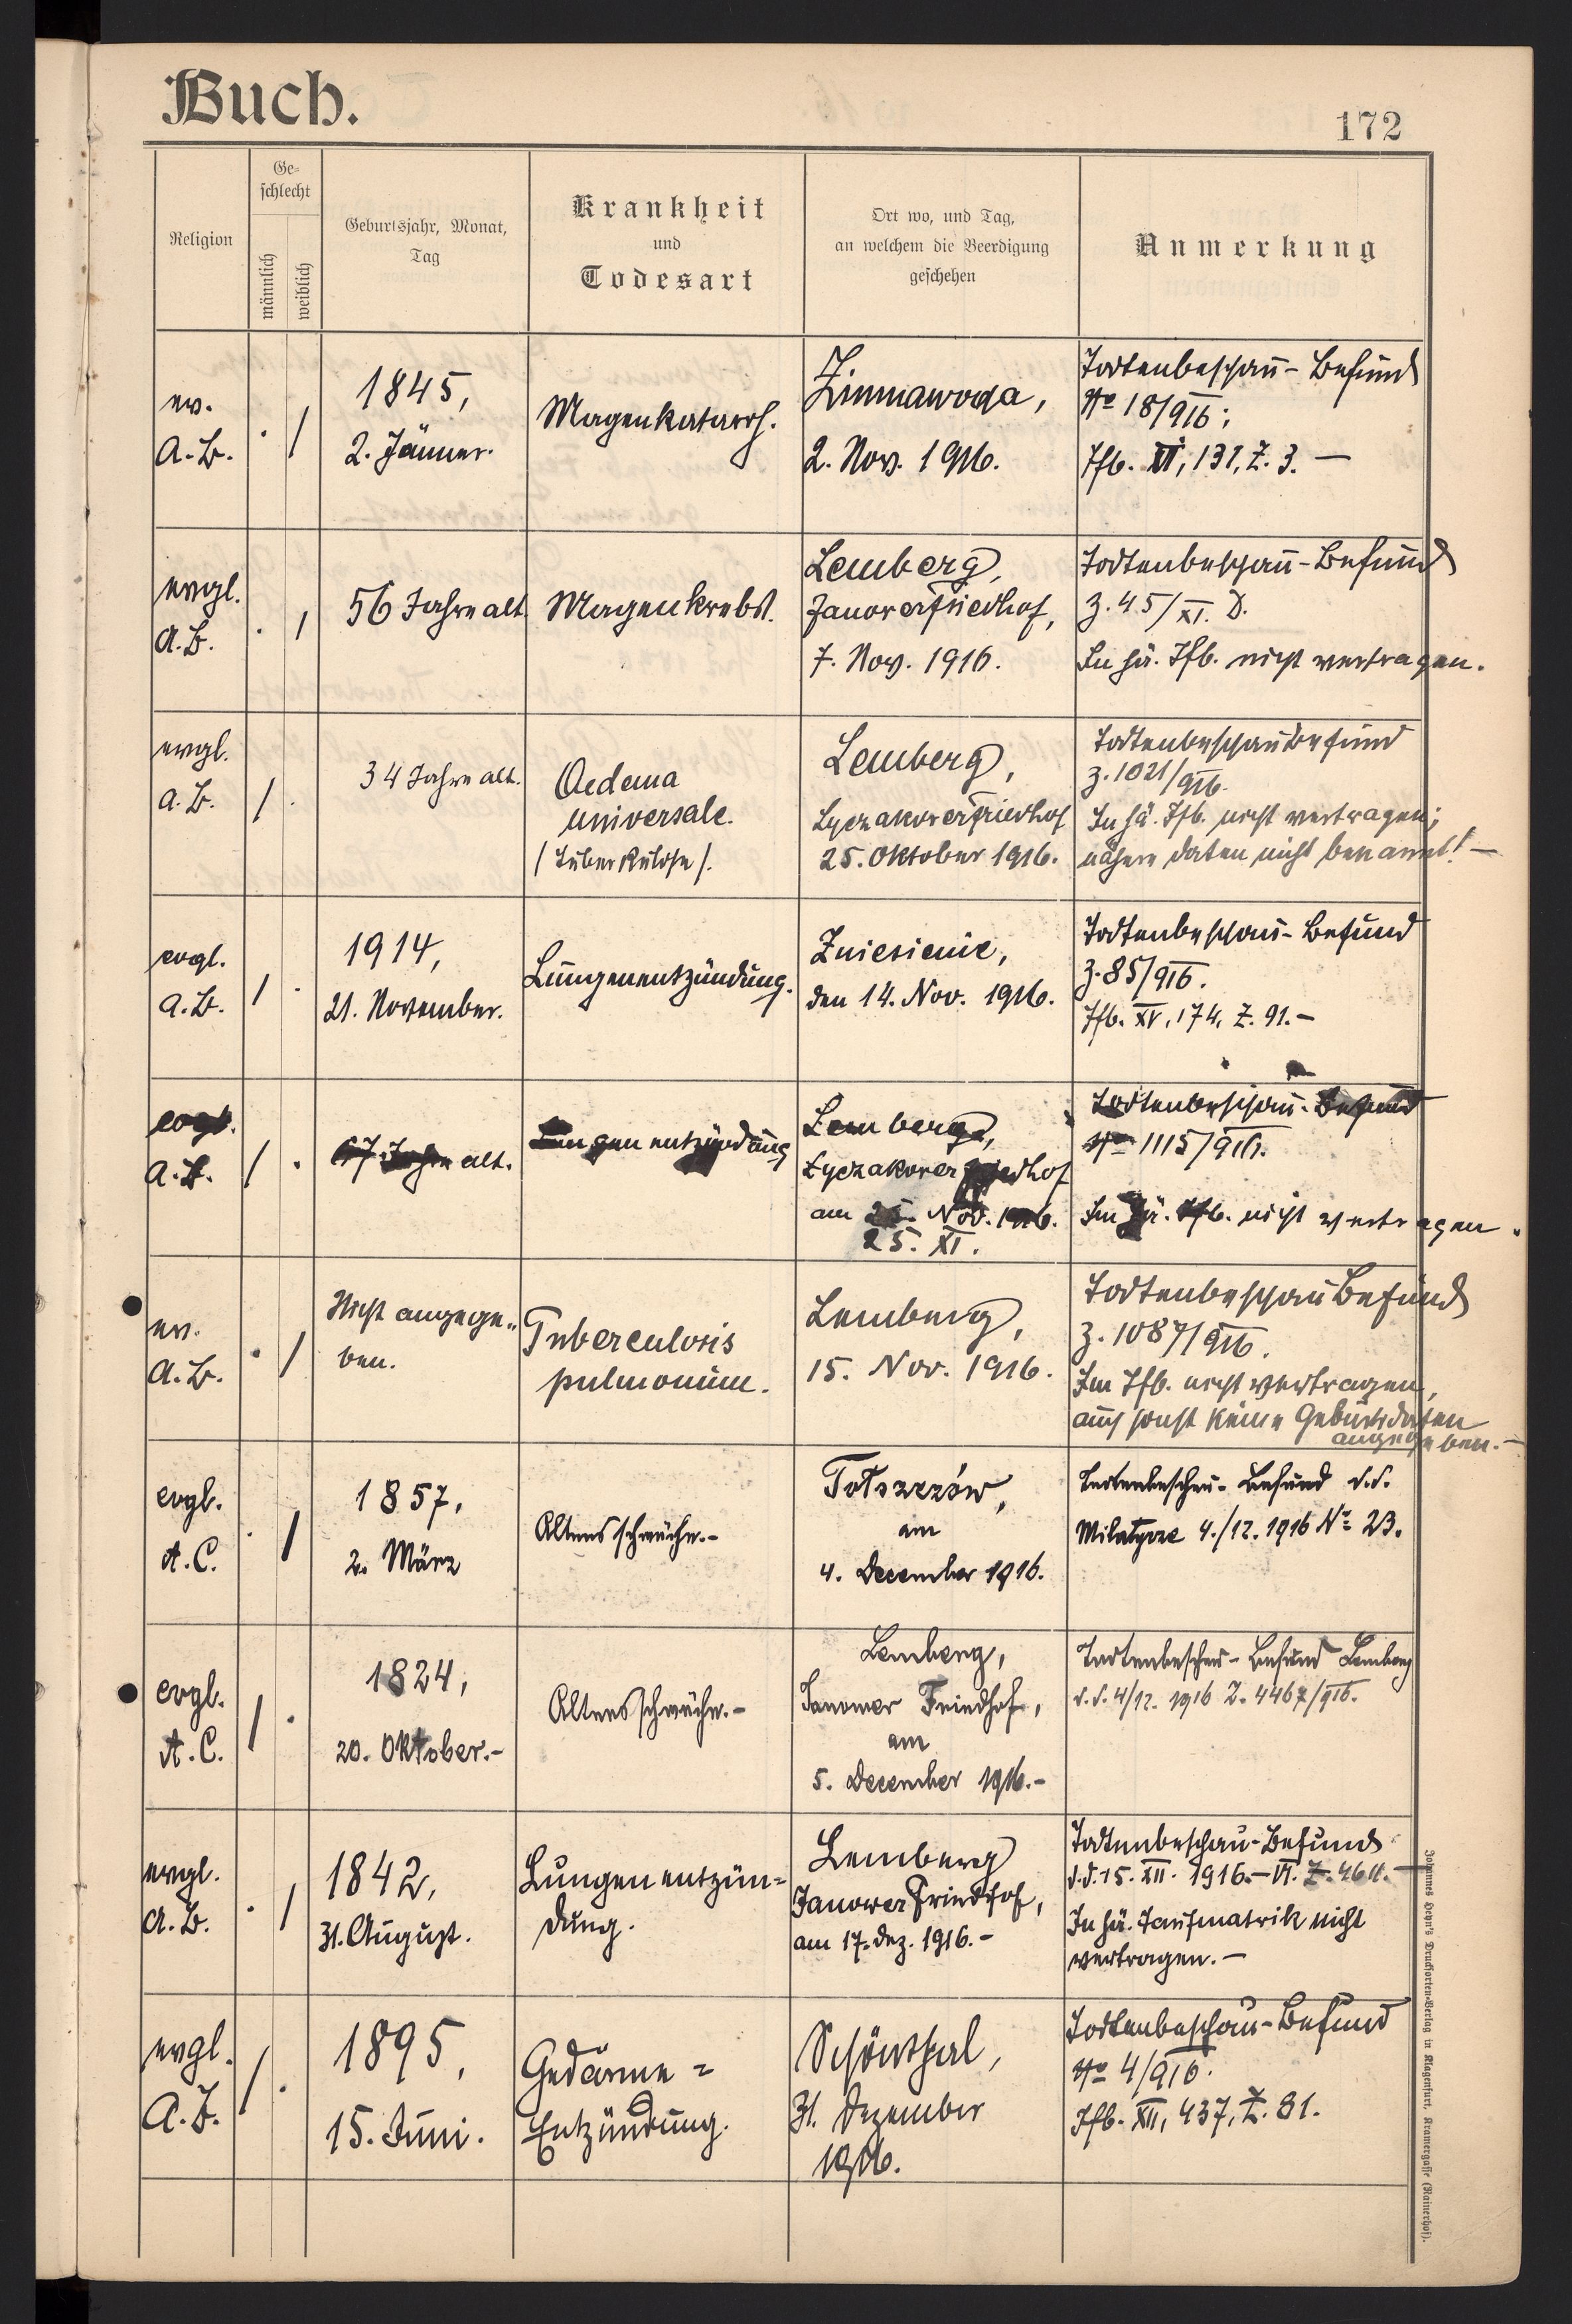 Buch.
172
Religion
Ge-
schlecht
männlich
weiblich
Geburtsjahr, Monat,
Tag
Krankheit
und
Todesart
Ort wo, und Tag,
an welchem die Beerdigung
geschehen
Anmerkung
ev.
A.B.
1845,
2. Jänner.
Magenkatarrh.
Zimnawoda,
2. Nov. 1916.
Todtenbeschau-Befund
No 18/916;
Tfb. XI, 131, Z. 3. —
evgl.
A.B.
56 Jahre alt.
Magenkrebs.
Lemberg,
Janoverfriedhof,
7. Nov. 1916.
Todtenbeschau-Befund
Z. 45/XI. D.
In hä. Tfb. nicht vertragen.
evgl.
A.B.
34 Jahre alt.
Oedema
universale.
/Tuberkulose/.
Lemberg,
Lyczakoverfriedhof
25. Oktober 1916.
Todtenbeschaubefund
Z. 1021/916.
In hä. Tfb. nicht vertragen;
nähere Daten nicht bekannt! —
evgl.
A.B.
1914,
21. November.
Lungenentzündung.
Zniesienie,
den 14. Nov. 1916.
Todtenbeschau-Befund
Z. 85/916.
Tfb. XV, 174, Z. 91. —
evgl.
A.B.
67 Jahre alt.
Lungenentzündung
Lemberg,
Lyczakover friedhof
am 25. Nov. 1916.
25. XI.
Todtenbeschau-Befund
No 1115/916.
Im hä. Tfb. nicht vertragen.
ev.
A.B.
Nicht angege-
ben.
Tuberculosis
pulmonum.
Lemberg,
15. Nov. 1916.
Todtenbeschau Befund
Z. 1087/916.
Im Tfb. nicht vertragen,
auch sonst keine Geburtsdaten
angegeben. —
evgl.
A.C.
1857,
2. März
Altersschwäche.-
Totszczów,
am
4. December 1916.
Todtenbeschau-Befund d.d.
4./12. 1916 No 23.
evgl.
A.C.
1824,
20. Oktober.-
Altersschwäche.-
Lemberg,
Janower Friedhof,
am
5. December 1916.-
Todtenbeschau-Befund Lemberg
d.d. 4/12. 1916 Z. 4467/916.
evgl.
A.B.
1842,
31. August.
Lungenentzün-
dung.
Lemberg
Janower Friedhof,
am 17. Dez. 1916.-
Todtenbeschau-Befund
d.d. 15. XII. 1916.-VI. Z. 4611.-
In hä. Taufmatrik nicht
vertragen.-
evgl.
A.B.
1895,
15. Juni.
Gedärme-
Entzündung.
Schönthal,
31. Dezember
1916.
Todtenbeschau-Befund
No 4/916.
Tfb. XII, 437, Z. 81.
Johannes Heyn's Drucksorten-Verlag in Klagenfurt, Kramergasse (Rainerhof).